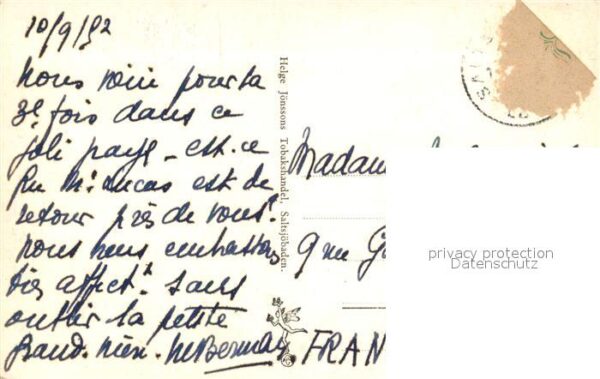 10/9/52
Nous voici pour la
3e. fois dans ce
joli pays - est-ce
que Mr. Lucas est de
retour près de vous?
nous vous embrassons
très affect.t sans
oublier la petite
Grand. nièce.
Helge Jönssons Tobakshandel, Saltsjöbaden.
Madam
9 rue
FRAN
privacy protection
Datenschutz